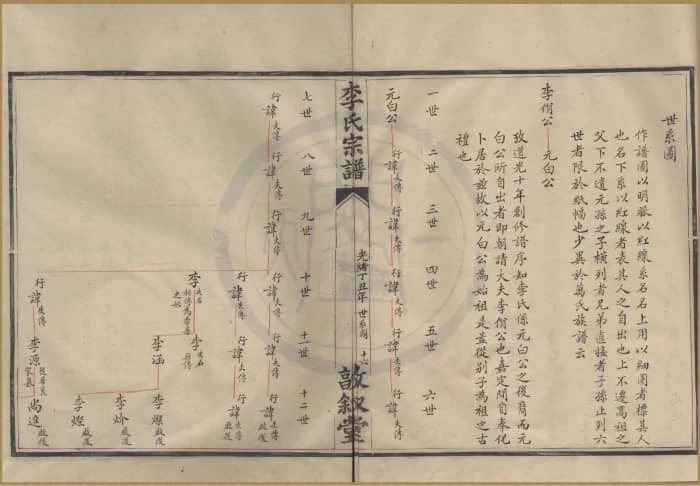 世系圖
作譜圖以明派以紅線系名名上用以細圈者標其人
也名下系以紅線者表其人之自出也上不遺高祖之
父下不遺元孫之子橫列者兄弟直接者子孫止列六
世者限於紙幅也少異於萬氏族譜云
李脩公 元白公
攷道光十年創修譜序知李氏係元白公之後裔而元
白公所自出者即朝請大夫李脩公也嘉定間自奉化
卜居於茲故以元白公為始祖是蓋從別子為祖之古
禮也
一世 二世 三世 四世 五世 六世
元白公 行諱失傳 行諱失傳 行諱失傳 行諱失傳 行諱失傳
李氏宗譜
光緒丁丑年 世系圖 十六
敘堂
七世 八世 九世 十世 十一世 十二世
行諱失傳 行諱失傳 行諱失傳 行諱失傳 行諱失傳 行諱失傳 啟後
行諱失傳 行諱失傳 行諱失傳 啟後
李失名 李失名 李燦啟後
李涵 李炌啟後
李燈啟後
行諱失傳 李源 尚進啟後